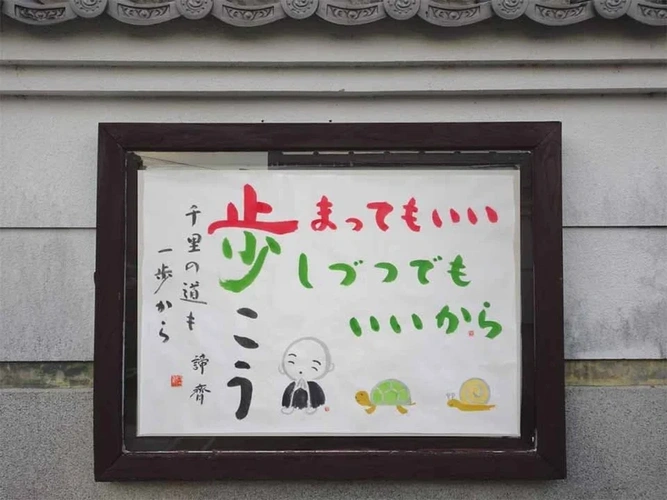 止まってもいい
少しづつでも
いいから
歩こう
千里の道も
一歩から
諦斉